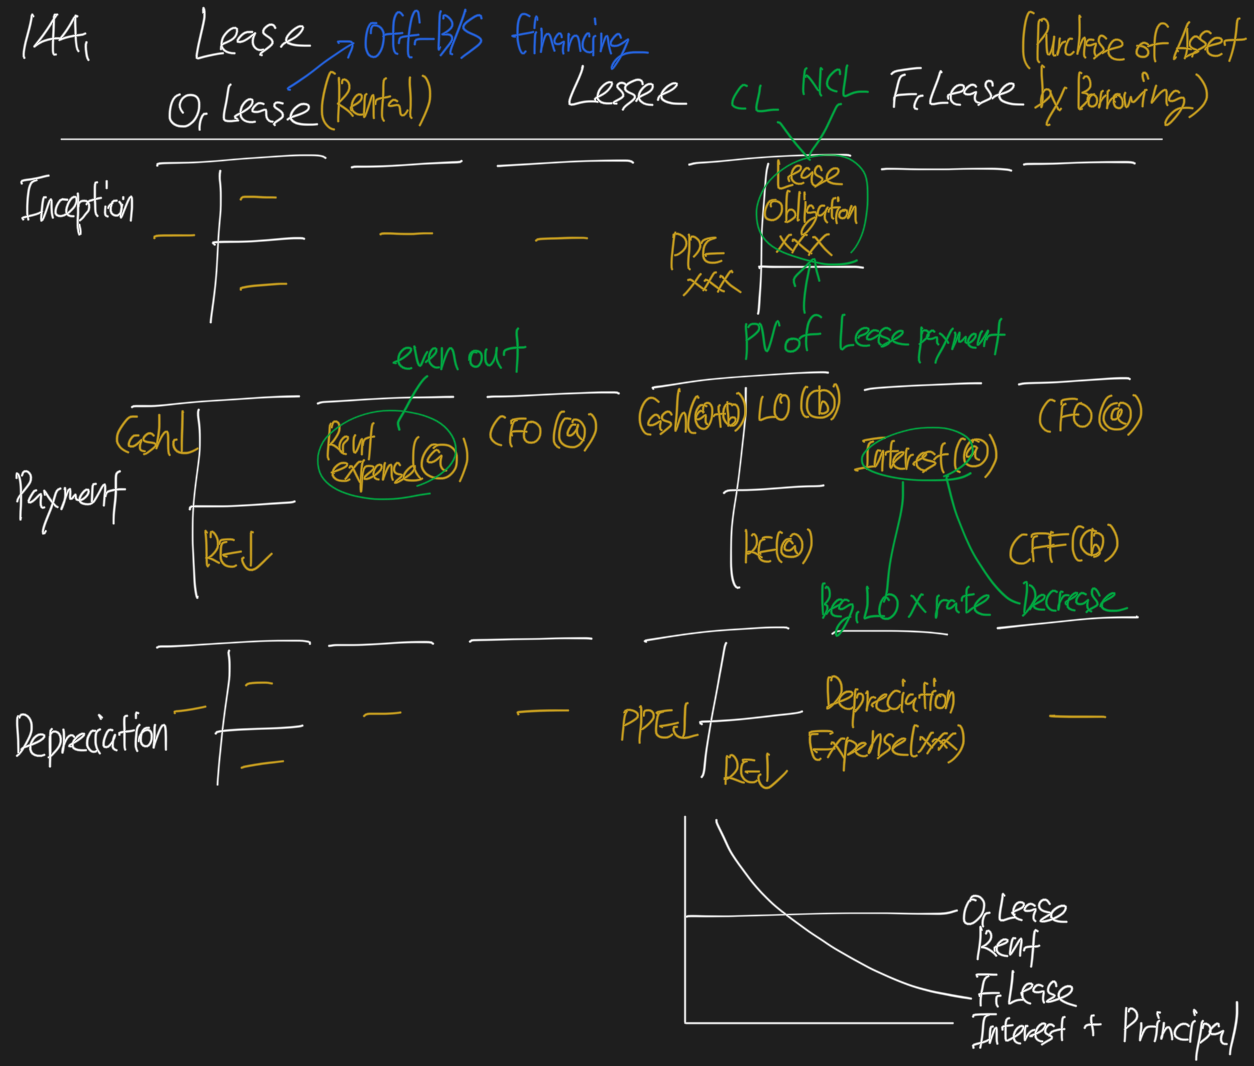 144. Lease
Off-B/S financing
O. Lease (Rental)
Lessee
CL NCL
F. Lease
(Purchase of Asset
by Borrowing)
Inception
Lease
Obligation
XXX
PPE
XXX
PV of Lease payment
even out
Payment
Cash↓
Rent
expense(ⓐ)
CFO (ⓐ)
RE↓
Cash(ⓐ+ⓑ)
LO (ⓑ)
Interest(ⓐ)
CFO(ⓐ)
RE(ⓐ)
CFF(ⓑ)
Beg. LO x rate
Decrease
Depreciation
PPE↓
RE↓
Depreciation
Expense(xxx)
O. Lease
Rent
F. Lease
Interest + Principal